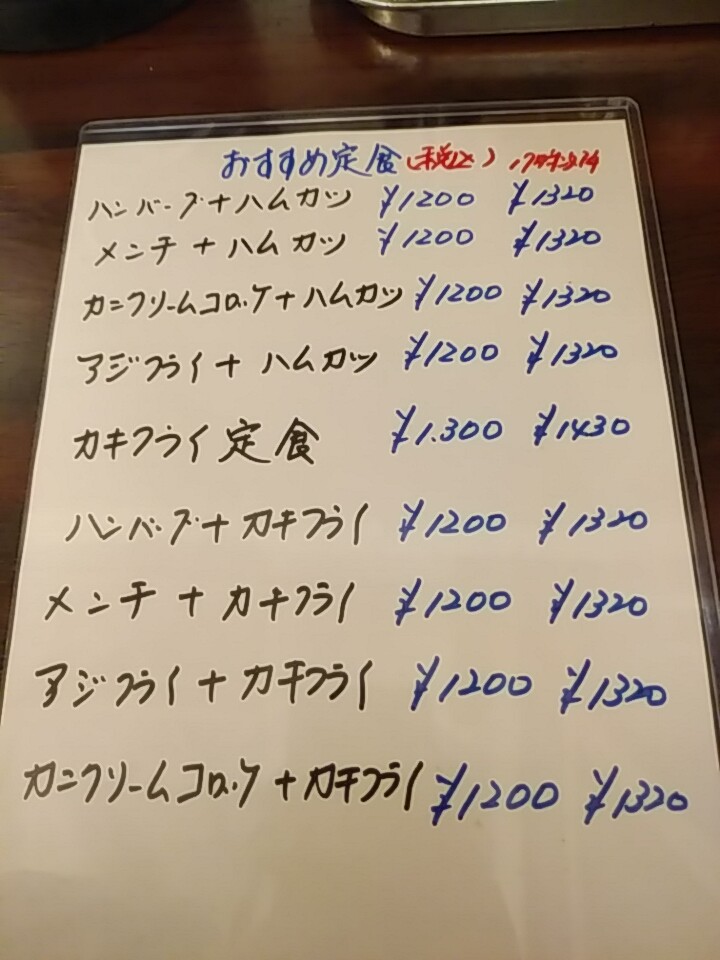 おすすめ定食(税込) 17時以降
ハンバーグ+ハムカツ ¥1200 ¥1320
メンチ+ハムカツ ¥1200 ¥1320
カニクリームコロッケ+ハムカツ ¥1200 ¥1320
アジフライ+ハムカツ ¥1200 ¥1320
カキフライ定食 ¥1.300 ¥1430
ハンバーグ+カキフライ ¥1200 ¥1320
メンチ+カキフライ ¥1200 ¥1320
アジフライ+カキフライ ¥1200 ¥1320
カニクリームコロッケ+カキフライ ¥1200 ¥1320